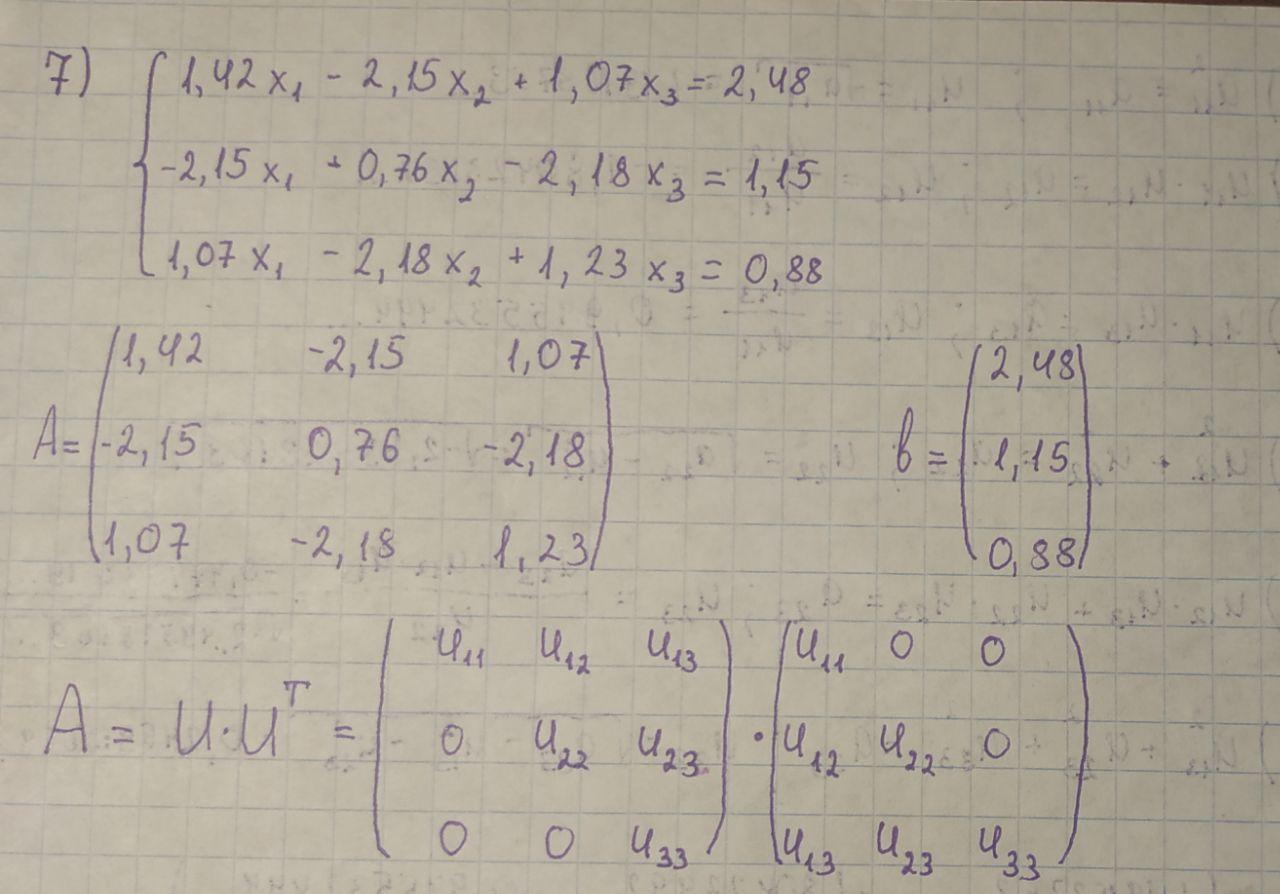 7) 1,42x₁ - 2,15x₂ + 1,07x₃ = 2,48
-2,15x₁ + 0,76x₂ - 2,18x₃ = 1,15
1,07x₁ - 2,18x₂ + 1,23x₃ = 0,88
A = (1,42 -2,15 1,07
-2,15 0,76 -2,18
1,07 -2,18 1,23)
b = (2,48
1,15
0,88)
A = U·Uᵀ = (u₁₁ u₁₂ u₁₃
0 u₂₂ u₂₃
0 0 u₃₃) · (u₁₁ 0 0
u₁₂ u₂₂ 0
u₁₃ u₂₃ u₃₃)